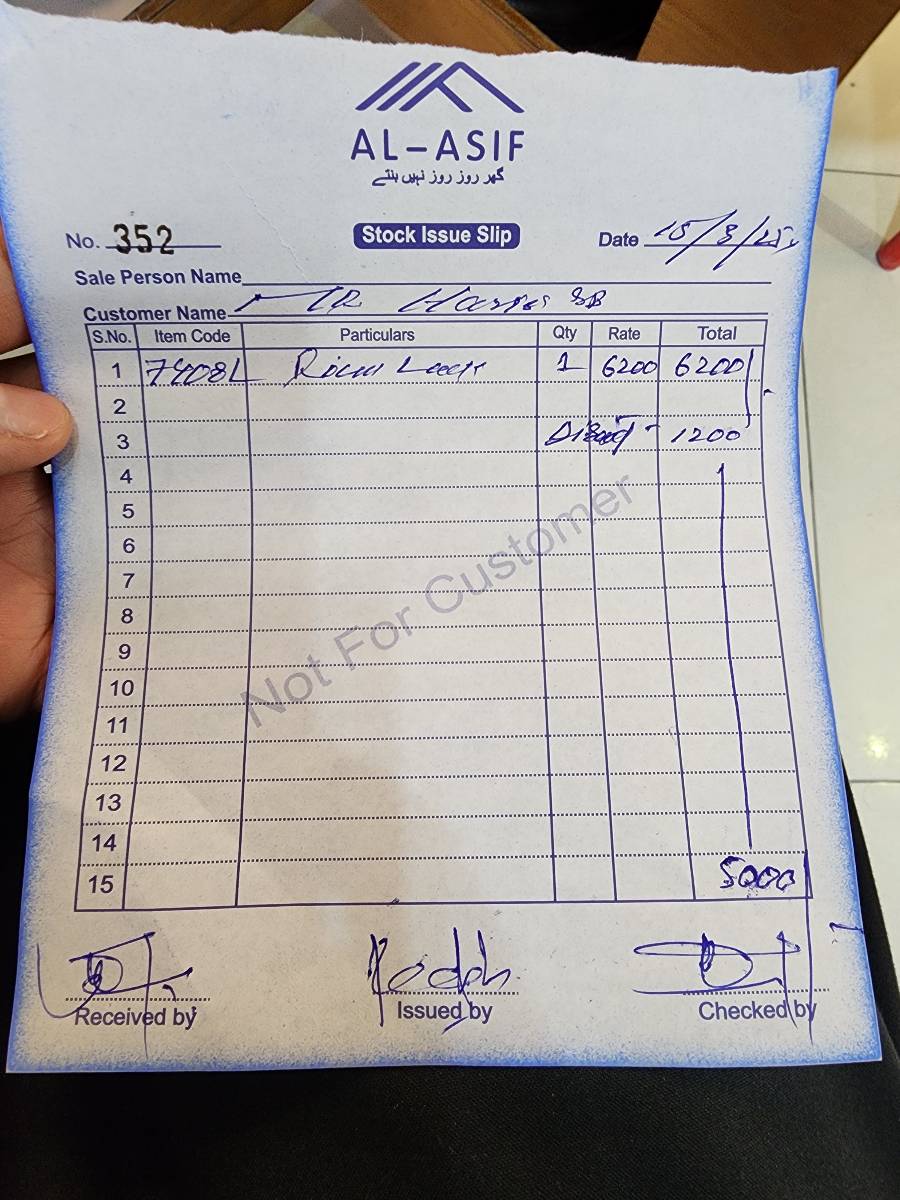 AL-ASIF
گھر روز روز نہیں بنتے
No. 352 Stock Issue Slip Date 15/3/25
Sale Person Name
Customer Name MR Haris SB
S.No. Item Code Particulars Qty Rate Total
1 74081 Rim Lock 1 6200 6200/-
2
3 Discount - 1200
4
5
6
7
8
9
10
11
12
13
14
15 5000/-
Not For Customer
Received by Issued by Checked by